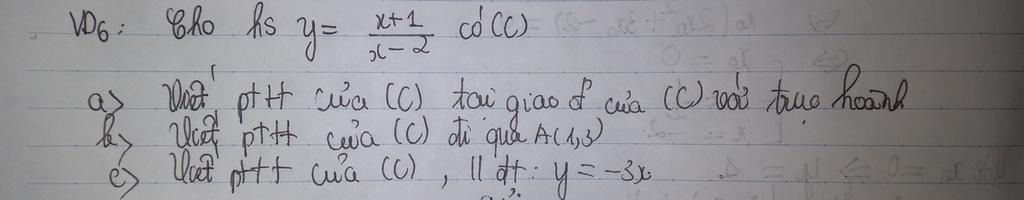 VD6: Cho hs y = \frac{x+1}{x-2} có (C)
a> Viết pttt của (C) tại giao đ' của (C) với trục hoành
b> Viết pttt của (C) đi qua A(1,3)
c> Viết pttt của (C), // đt: y = -3x